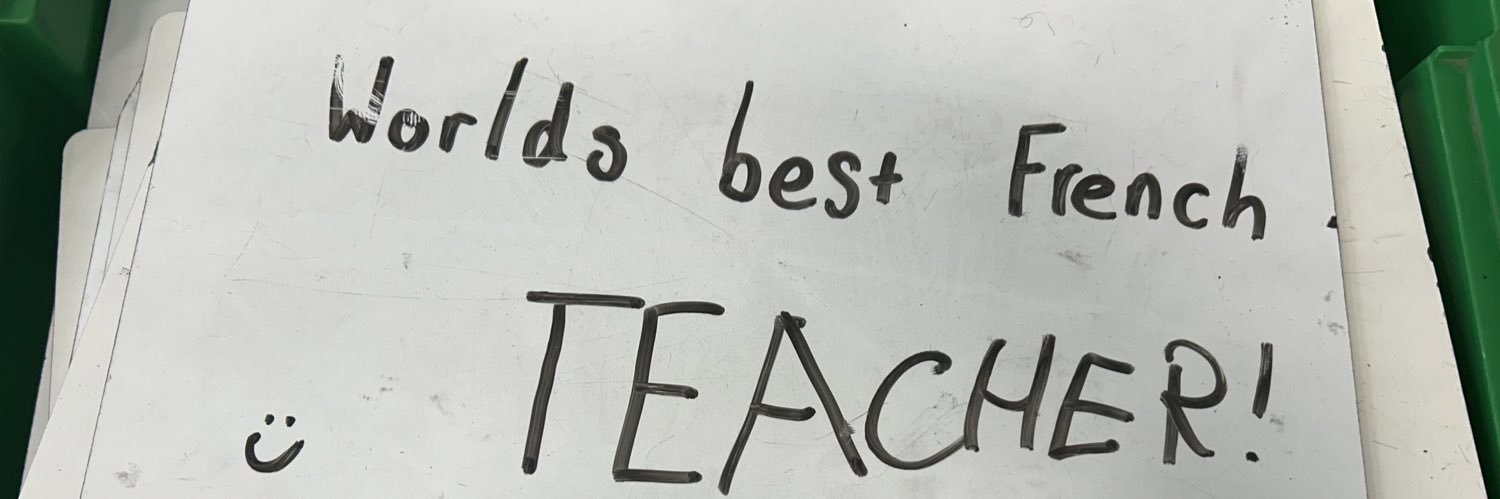 Worlds best French
TEACHER!